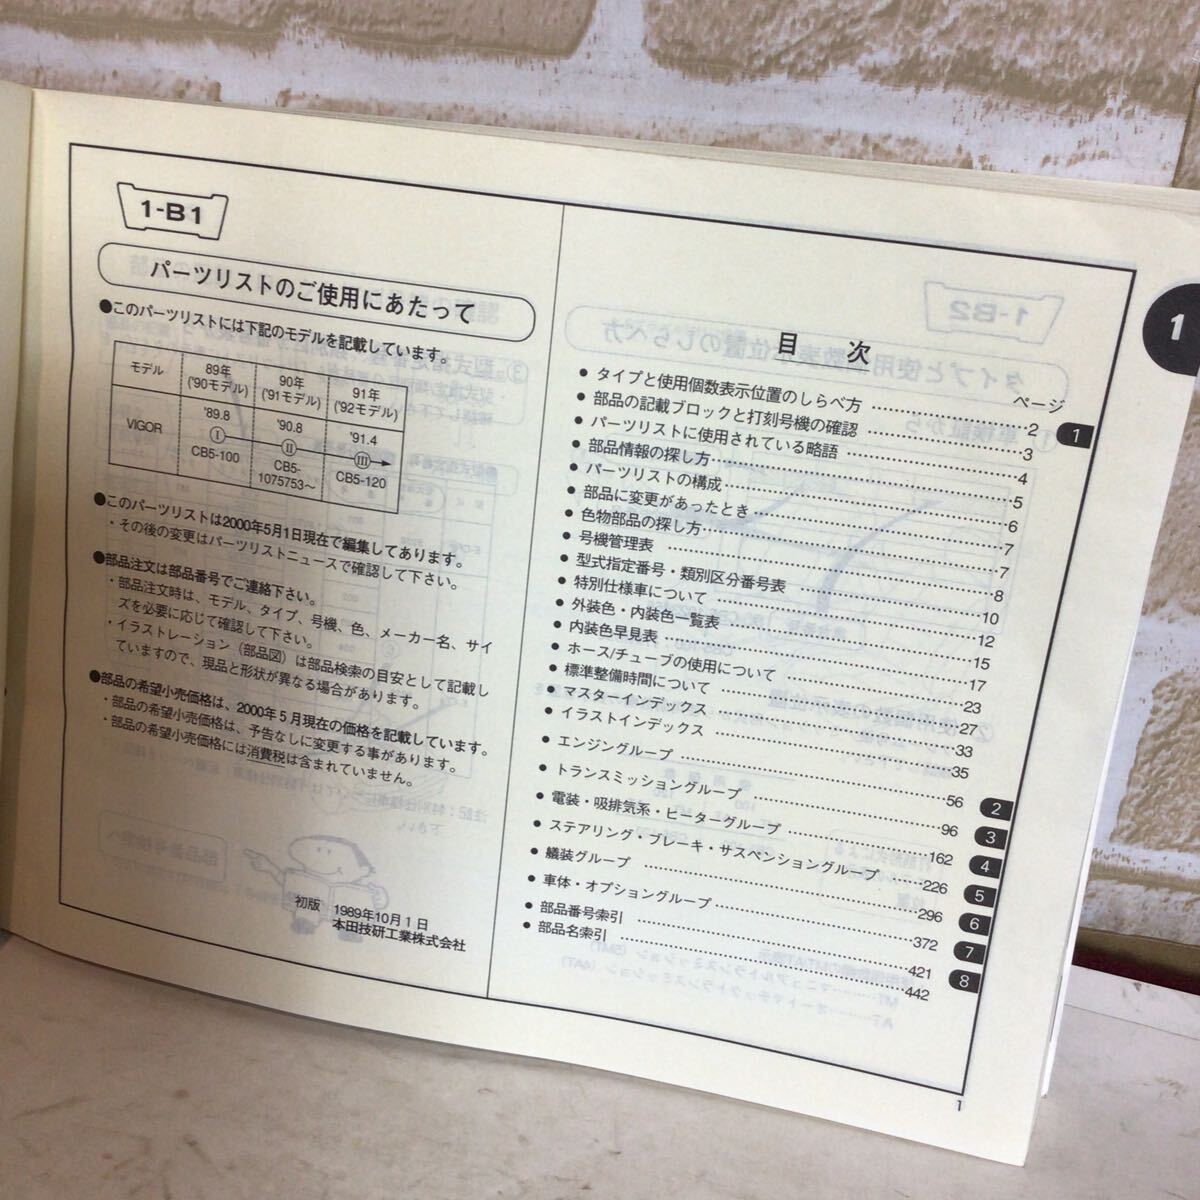 1-B1
パーツリストのご使用にあたって
●このパーツリストには下記のモデルを記載しています。
モデル 89年 ('90モデル) 90年 ('91モデル) 91年 ('92モデル)
VIGOR '89.8 Ⅰ CB5-100 '90.8 Ⅱ CB5-1075753～ '91.4 Ⅲ CB5-120
●このパーツリストは2000年5月1日現在で編集してあります。
・その後の変更はパーツリストニュースで確認して下さい。
●部品注文は部品番号でご連絡下さい。
・部品注文時は、モデル、タイプ、号機、色、メーカー名、サイ
ズを必要に応じて確認して下さい。
・イラストレーション（部品図）は部品検索の目安として記載し
ていますので、現品と形状が異なる場合があります。
●部品の希望小売価格は、2000年5月現在の価格を記載しています。
・部品の希望小売価格は、予告なしに変更する事があります。
・部品の希望小売価格には消費税は含まれていません。
初版 1989年10月1日
本田技研工業株式会社
目 次
ページ
● タイプと使用個数表示位置のしらべ方 2 1
● 部品の記載ブロックと打刻号機の確認 3
● パーツリストに使用されている略語 4
● 部品情報の探し方 5
● パーツリストの構成 6
● 部品に変更があったとき 7
● 色物部品の探し方 7
● 号機管理表 8
● 型式指定番号・類別区分番号表 10
● 特別仕様車について 12
● 外装色・内装色一覧表 15
● 内装色早見表 17
● ホース/チューブの使用について 23
● 標準整備時間について 27
● マスターインデックス 33
● イラストインデックス 35
● エンジングループ 56 2
● トランスミッショングループ 96 3
● 電装・吸排気系・ヒーターグループ 162 4
● ステアリング・ブレーキ・サスペンショングループ 226 5
● 艤装グループ 296 6
● 車体・オプショングループ 372 7
● 部品番号索引 421 8
● 部品名索引 442
1
1